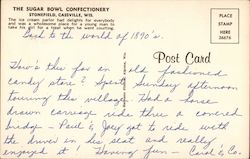 THE SUGAR BOWL CONFECTIONERY
STONEFIELD, CASSVILLE, WIS.
The ice cream parlor had delights for everybody
and was a wholesome place for a young man to
take his girl for a treat when he went courting.
Back to the world of 1890's.
Post Card
PLACE
STAMP
HERE
26676
How's this for an old fashioned
candy store? Spent Sunday afternoon
touring this village. Had a horse
drawn carriage ride thru a covered
bridge - Paul & Joey got to ride with
the driver in his seat and really
enjoyed it! Having fun - Carol & Co.